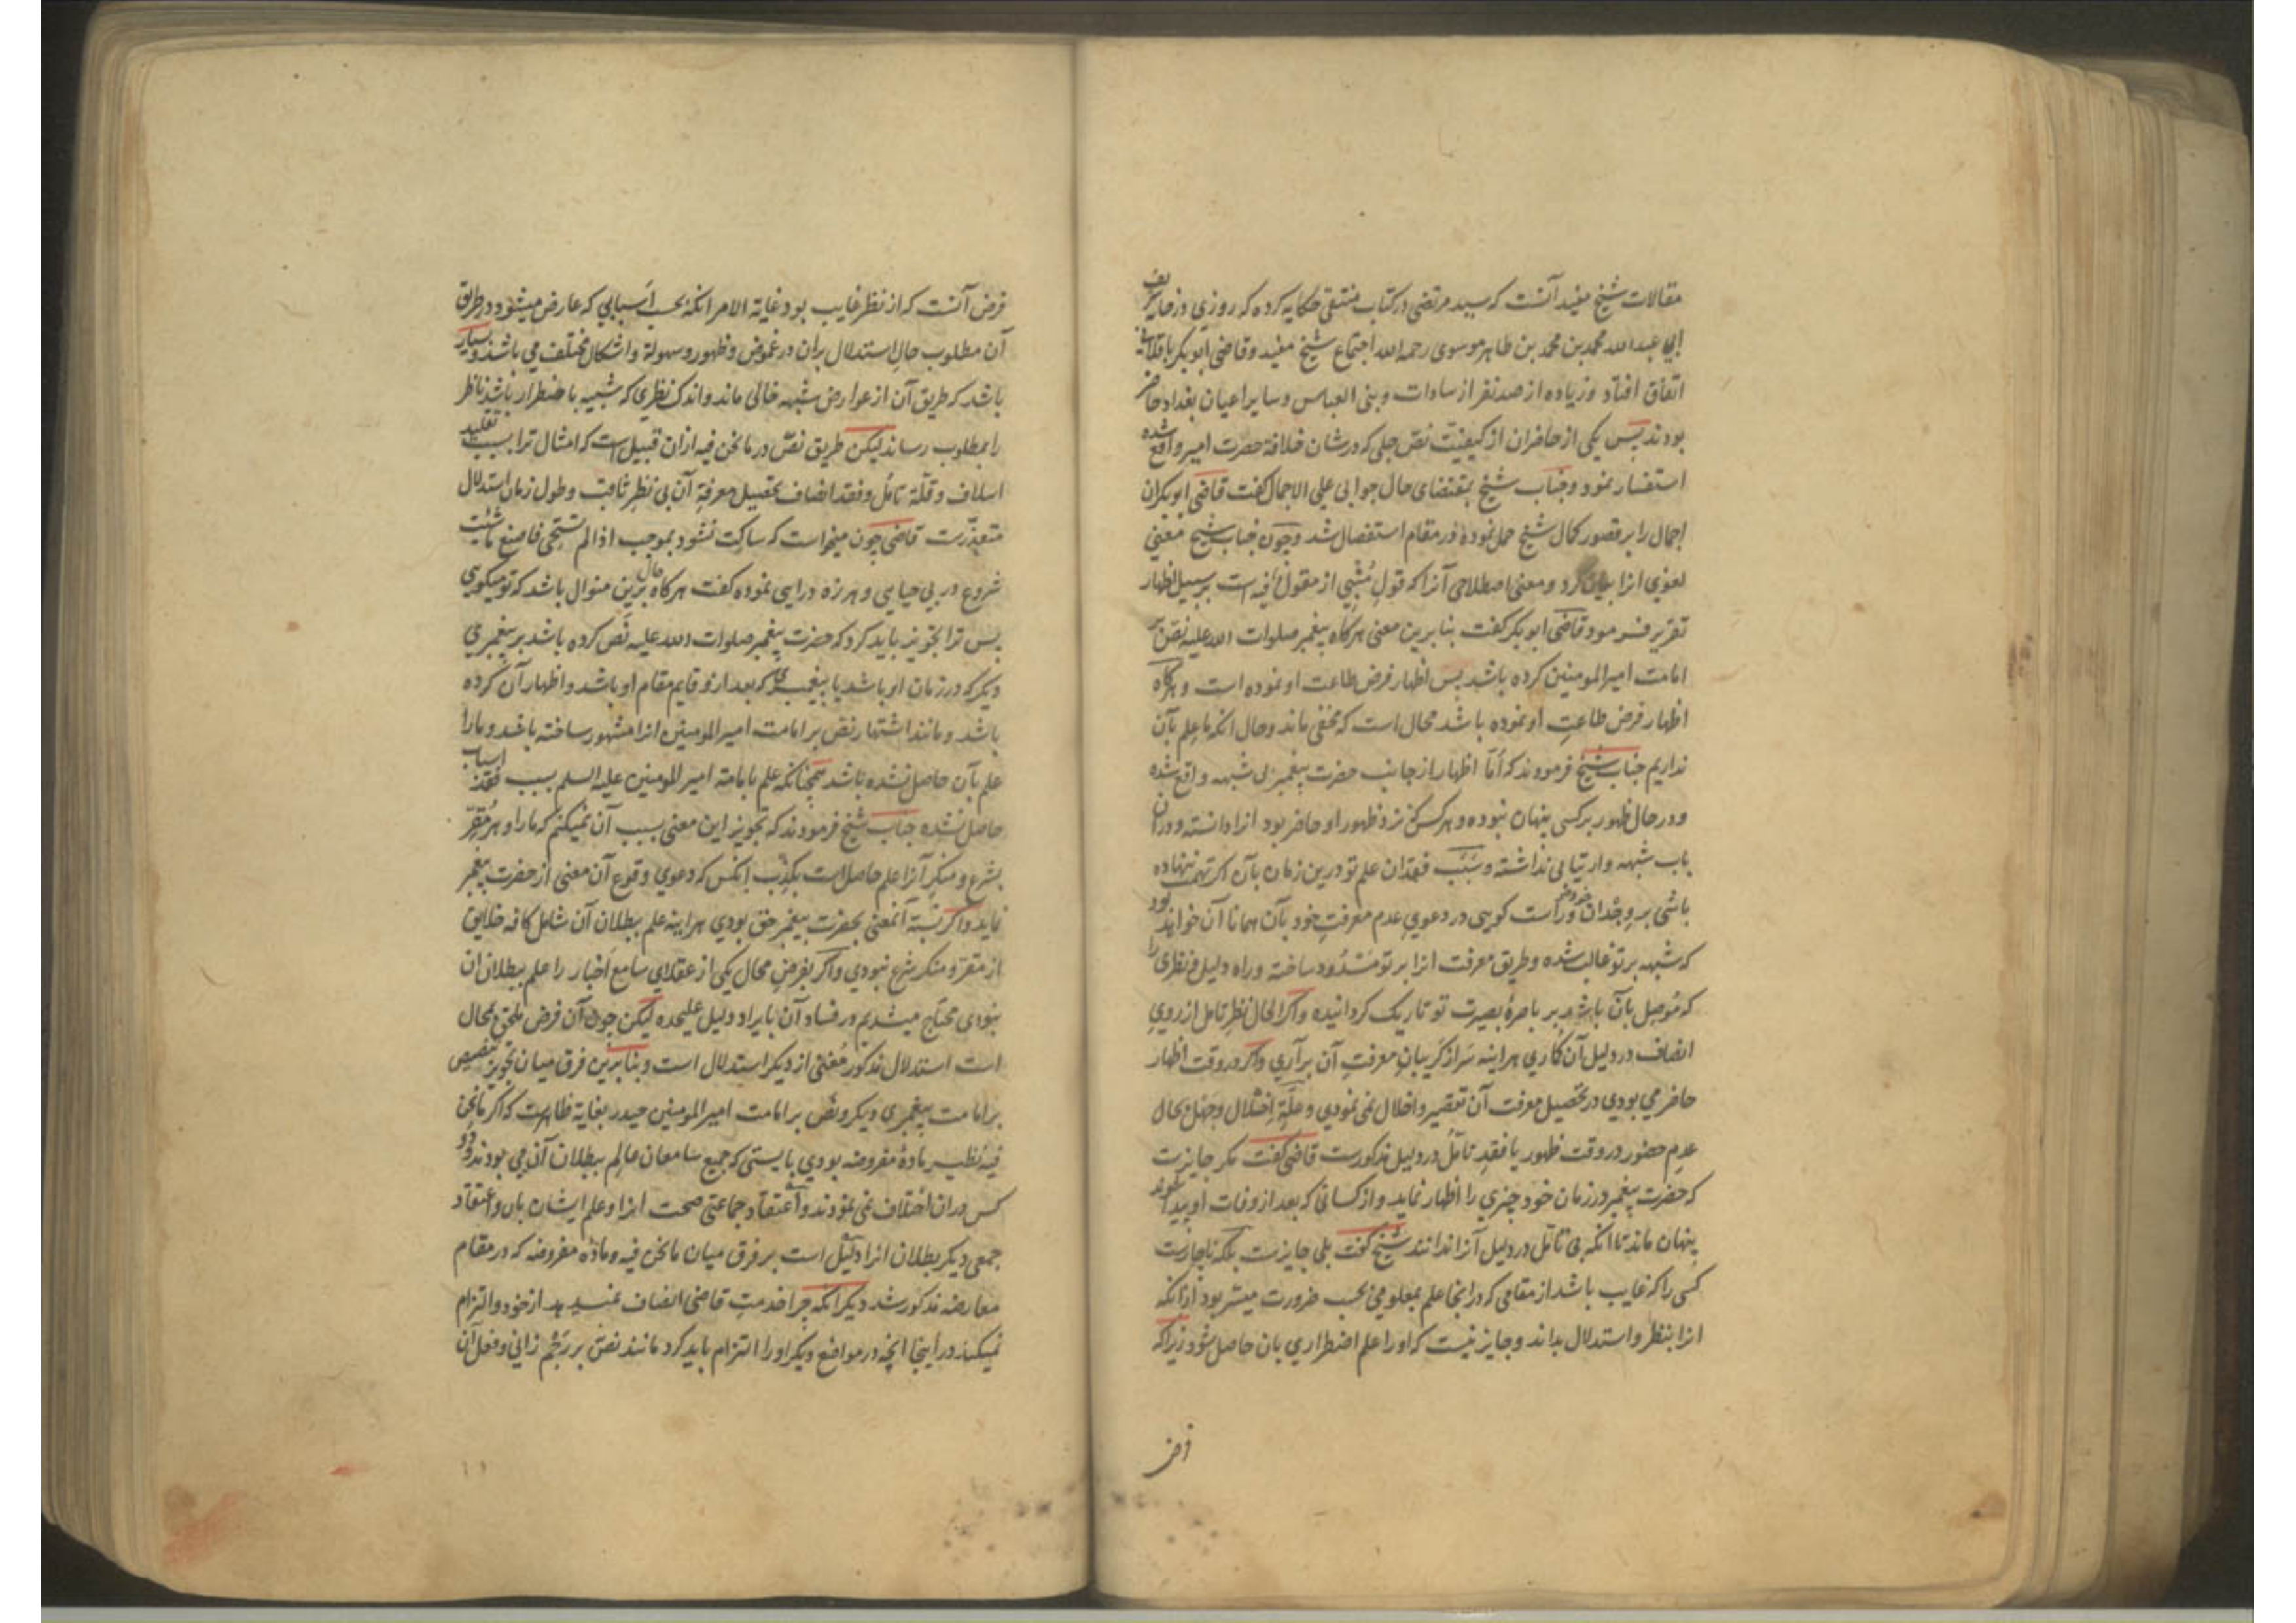 مقالات شیخ مفید آنست که سید مرتضی در کتاب منتقی حکایه کرده که روزی در خانه شریف
ابی عبدالله محمد بن محمد بن طاهر موسوی رحمه الله اجتماع شیخ مفید و قاضی ابو بکر باقلانی
اتفاق افتاد و زیاده از صد نفر از سادات و بنی العباس و سایر اعیان بغداد حاضر
بودند پس یکی از حاضران از کیفیت نص جلی که در شان خلافة حضرت امیر واقع شده
استفسار نمود و جناب شیخ بمقتضای حال جوابی علی الاجمال گفت قاضی ابو بکر آن
اجمال را بر قصور کمال شیخ حمل نموده در مقام استفصال شد و چون جناب شیخ معنی
لغوی انرا بیان کرد و معنی اصطلاحی آنرا که قول مُنْبِی از مقول فیه است بر سبیل اظهار
تقریر فرمود قاضی ابو بکر گفت بنا برین معنی هرگاه پیغمبر صلوات الله علیه نص بر
امامت امیر المومنین کرده باشد پس اظهار فرض طاعت او نموده است و هرگاه
اظهار فرض طاعتِ او نموده باشد محال است که مخفی ماند و حال انکه ما علم بآن
نداریم جناب شیخ فرمودند که اَمّا اظهار از جانب حضرت پیغمبر بی شبهه واقع شده
و در حال ظهور بر کسی پنهان نبوده و هر کس که نزد ظهور او حاضر بود انرا دانسته و در ان
باب شبهه و ارتیابی نداشته و سَبَب فقدان علم تو درین زمان بآن اگر تهمت ننهاده
باشی بر وجدان خود و راست گویی در دعوی عدم معرفتِ خود بآن همانا آن خواهد بود
که شبهه بر تو غالب شده و طریق معرفت انرا بر تو مَسْدُود ساخته و راه دلیل و نظری را
که مُوصِل بآن باشد بر باصرهٔ بصیرت تو تاریک گردانیده و اگر الحال نظرِ تامل از روی
انصاف در دلیل آن گماری هر اینه سَر از گریبانِ معرفتِ آن برآری و اگر در وقت اظهار
حاضر می بودی در تحصیل معرفت آن تقصیر و اخلال نمی نمودی و علّةِ اختلال و جهل بحال
عدمِ حضور در وقت ظهور یا فقدِ تامّل در دلیل مذکورست قاضی گفت مگر جایزست
که حضرت پیغمبر در زمان خود چیزی را اظهار نماید و از کسانی که بعد از وفات او پیدا شوند
پنهان ماند تا انکه بی تامل در دلیل آنرا ندانند شیخ گفت بلی جایزست بلکه ناچارست
کسی را که غایب باشد از مقامی که در انجا علم بمعلومی بحسب ضرورت میسّر بود از انکه
انرا بنظر و استدلال بداند و جایز نیست که او را علم اضطراری بان حاصل شود زیرا که
فرض
فرض آنست که از نظر غایب بود غایة الامر انکه بحسب اَسبابی که عارض میشود در طریق
آن مطلوب حالِ استدلال بران در غموض و ظهور و سهولة و اشکال مختلف می باشد و بسیار
باشد که طریق آن از عوارض شبهه خالی ماند و اندک نظری که شبیه باضطرار باشد ناظر
را بمطلوب رساند لیکن طریق نصّ در ما نحن فیه ازان قبیل است که امثال ترا بسبب تقلید
اسلاف و قلّة تامّل و فقد انصاف تحصیل معرفةِ آن بی نظرِ ثاقب و طول زمان استدلال
متعذّرست قاضی چون میخواست که ساکت نشود بموجب اذا لم تَسْتَحْیِ فاصنع ما شئت
شروع در بی حیایی و هرزه درایی نموده گفت هرگاه حال برین منوال باشد که تو میگویی
پس ترا تجویز باید کرد که حضرت پیغمبر صلوات الله علیه نَص کرده باشد بر پیغمبری
دیگر که در زمان او باشد یا پیغمبری که بعد از و قایم مقام او باشد و اظهار آن کرده
باشد و مانند اشتهار نص بر امامت امیر المومنین انرا مشهور ساخته باشد و ما را
علم بآن حاصل نشده باشد همچنانکه علم بامامة امیر المومنین علیه السلم بسبب فقد اسباب
حاصل نشده جناب شیخ فرمودند که تجویز این معنی بسبب آن نمیکنم که ما را و هر مُقِرّ
بشرع و منکر آنرا علم حاصل است بکذب انکس که دعوی وقوع آن معنی از حضرت پیغمبر
نماید و اگر نسبة آنمعنی بحضرت پیغمبر حق بودی هراینه علم ببطلان آن شامل کافه خلایق
از مقرّ و منکر شرع نبودی و اگر بفرض محال یکی از عقلای سامع اَخبار را علم ببطلان ان
نبودی محتاج میشدیم در فساد آن بایراد دلیل علیحده لیکن چون آن فرض ملحق بمحال
است استدلال مذکور مُغنی از دیگر استدلال است و بنا برین فرق میان تجویز تنصیص
بر امامت پیغمبری دیگر و نصّ بر امامت امیر المومنین حیدر بغایة ظاهرست که اگر ما نحن
فیه نظیر مادهٔ مفروضه بودی بایستی که جمیع سامعان عالِم ببطلان آن می بودند و دو
کس در ان اختلاف نمی نمودند و اعتقاد جماعتی صحت انرا و علم ایشان بان و اعتقاد
جمعی دیگر بطلان انرا دلیل است بر فرق میان ما نحن فیه و مادّه مفروضه که در مقام
معارضه مذکور شد دیگر انکه چرا خدمتِ قاضی انصاف نمیدهد از خود و التزام
نمیکند در اینجا انچه در مواضع دیگر او را التزام باید کرد مانند نصّ بر رَجْم زانی و فعل آن